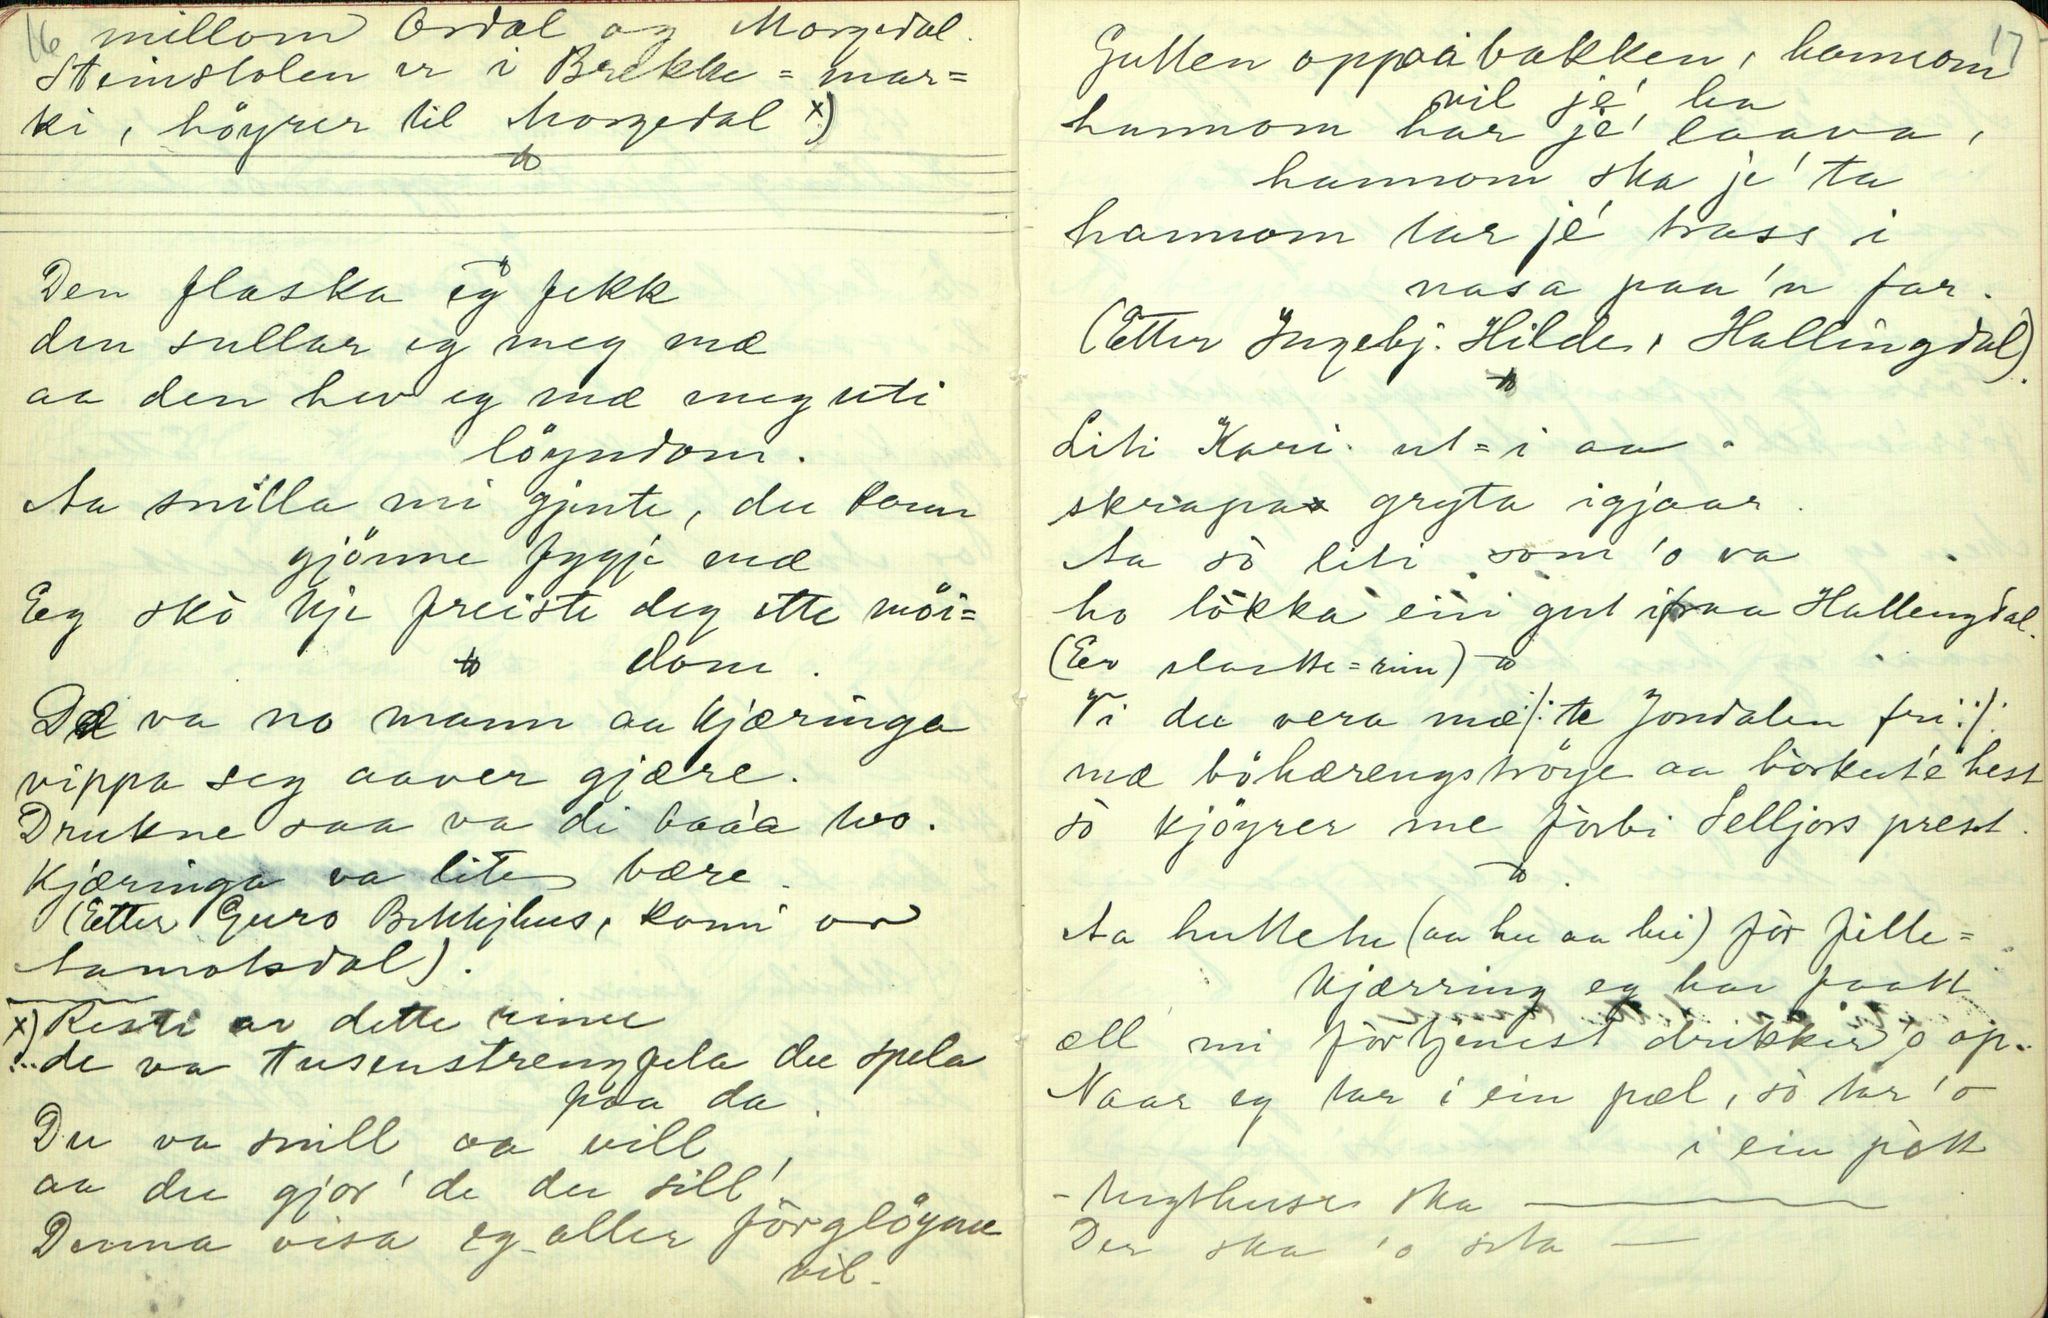 16
millom Ordal og Morgedal.
Steinstolen er i Brekke=mar=
ki, höyrer til Morgedal x)
Den flaska eg fekk
den sullar eg meg mæ
aa den hev eg mæ meg uti
löyndom.
Aa snilla mi gjente, du kann
gjönne fygje mæ
Eg skò kje freiste deg ette möi=
dom.
Dæ va no mann aa kjæringa
vippa seg aaver gjære.
Drukne saa va di baa'a two.
Kjæringa va lite bære.
(Etter Guro Bekkjhus, komi or
Aamotsdal).
x) Resti av dette rime
... de va tusenstrengfela du spela
paa da.
Du va snill aa vill,
aa du gjor' de du sill'
Denna visa eg aller förglöyme
vil.
17
Gutten oppaa bakken, hannom
vil je' ha
hannom har je' laava,
hannom ska je' ta
hannom tar je' trass i
nasa paa'n far.
(Etter Ingebj. Hilde, Hallingdal).
Liti Kari ut=i aa
skrapa gryta igjaar.
Aa sò liti som 'o va
ho lòkka ein gut ifraa Hallengdal.
(Er slaatte=rim)
Vi du vera mæ /: te Jondalen fri :/
mæ böhærengströye aa bòrkut'e hest
sò kjöyrer me fòrbi Selljors prest.
Aa huttetu (aa hu aa hei) fòr fille=
kjærring eg har faatt
æll mi fòrtjenest drikker 'o op.
Naar eg tar i ein pæl, sò tar 'o
i ein pòtt
- tugthuse ska
Der ska 'o sita